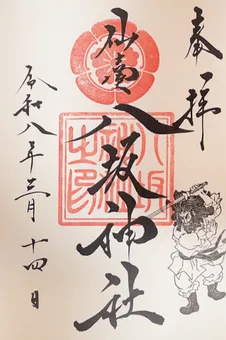 奉拝
仙台
八坂神社
令和八年三月十四日
八坂神社之印